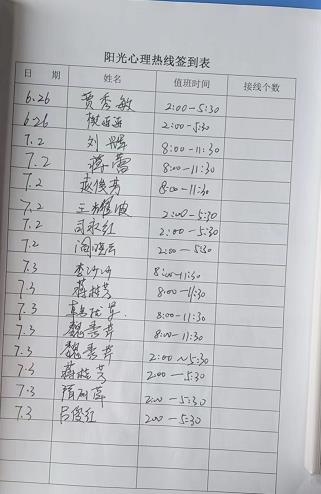 阳光心理热线签到表
日 期 姓名 值班时间 接线个数
6.26 贾秀敏 2:00-5:30
6.26 2:00-5:30
7.2 刘 8:00-11:30
7.2 蒋蕾 8:00-11:30
7.2 8:00-11:30
7.2 王 波 2:00-5:30
7.2 司永红 2:00-5:30
7.2 陶 云 2:00-5:30
7.3 李 8:00-11:30
7.3 蒋桂芳 8:00-11:30
7.3 8:00-11:30
7.3 魏 芹 8:00-11:30
7.3 魏 芹 2:00~5:30
7.3 蒋桂芳 2:00-5:30
7.3 隋 萍 2:00-5:30
7.3 吕俊红 2:00-5:30